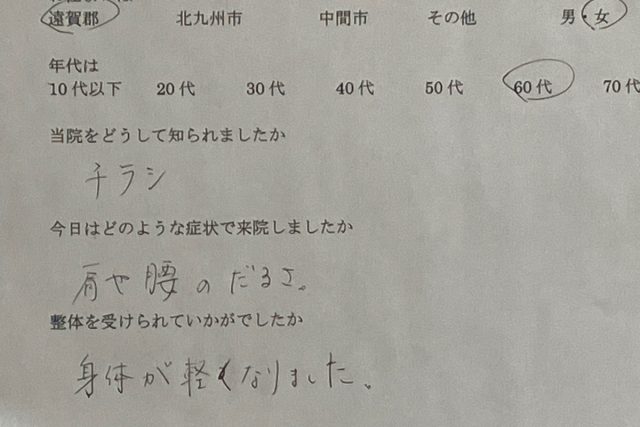 遠賀郡 北九州市 中間市 その他 男・女
年代は
10代以下 20代 30代 40代 50代 60代 70代
当院をどうして知られましたか
チラシ
今日はどのような症状で来院しましたか
肩や腰のだるさ。
整体を受けられていかがでしたか
身体が軽くなりました。